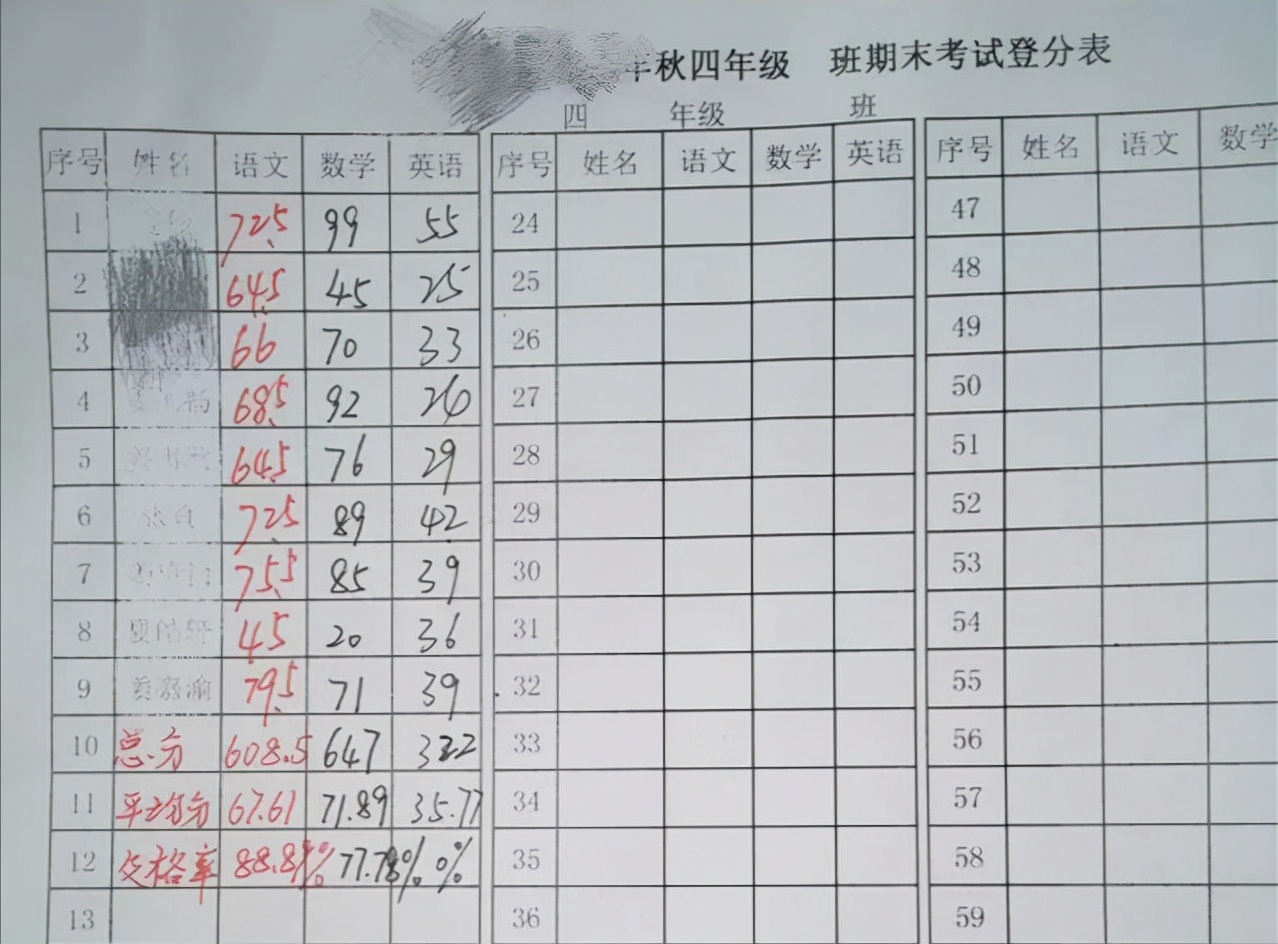 秋四年级 班期末考试登分表
四 年级 班
序号 姓名 语文 数学 英语 序号 姓名 语文 数学 英语 序号 姓名 语文 数学
1 72.5 99 55 24 47
2 64.5 45 25 25 48
3 66 70 33 26 49
4 68.5 92 26 27 50
5 64.5 76 29 28 51
6 72.5 89 42 29 52
7 75.5 85 39 30 53
8 45 20 36 31 54
9 79.5 71 39 32 55
10 总分 608.5 647 322 33 56
11 平均分 67.61 71.89 35.77 34 57
12 及格率 88.89% 77.78% 0% 35 58
13 36 59